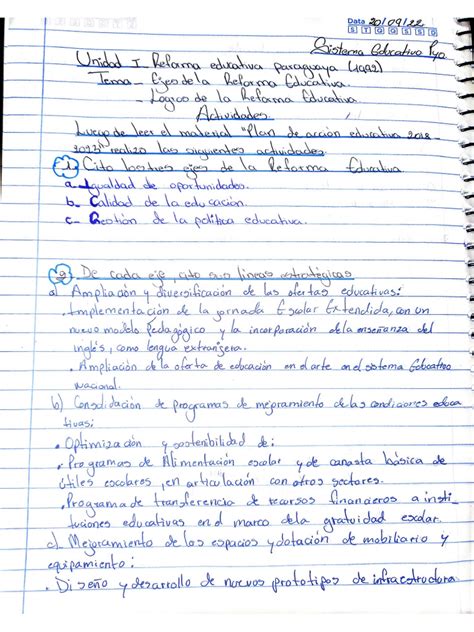 Data 20/09/22
S T Q Q S S D
Sistema Educativo Pyo.
Unidad I_ Reforma educativa paraguaya (1992)
Tema_ Ejes de la Reforma Educativa
_ Logros de la Reforma Educativa
Actividades
Luego de leer el material "Plan de acción educativa 2018_
2023" realizo las siguientes actividades.
1. Cito los tres ejes de la Reforma Educativa
a_ Igualdad de oportunidades.
b_ Calidad de la educación.
c_ Gestión de la política educativa.
2. De cada eje, cito sus líneas estratégicas
a) Ampliación y diversificación de las ofertas educativas:
· Implementación de la jornada Escolar Extendida, con un
nuevo modelo Pedagógico y la incorporación de la enseñanza del
inglés, como lengua extranjera.
· Ampliación de la oferta de educación en el arte en el sistema Educativo
nacional.
b) Consolidación de programas de mejoramiento de las condiciones educa
tivas:
• Optimización y sostenibilidad de:
• Programas de Alimentación escolar y de canasta básica de
útiles escolares, en articulación con otros sectores.
• Programa de transferencia de recursos financieros a insti_
tuciones educativas en el marco de la gratuidad escolar.
c) Mejoramiento de los espacios y dotación de mobiliario y
equipamiento:
• Diseño y desarrollo de nuevos prototipos de infraestructura